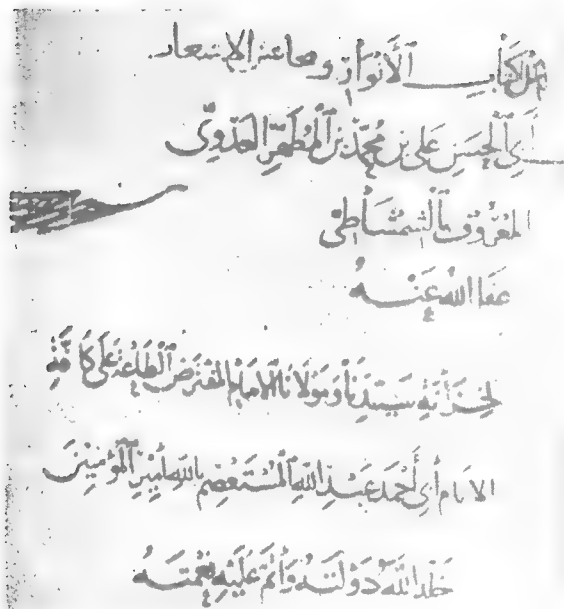 كتاب الأنوار ومحاسن الاشعار
أبي الحسن علي بن محمد بن المطهر العدوي
المعروف بالشمشاطي
عفا الله عنه
لخزانة سيدنا ومولانا الامام المفترض الطاعة على كافة
الامام أبي أحمد عبد الله المستعصم بالله أمير المؤمنين
خلد الله دولته وأتم عليه نعمته